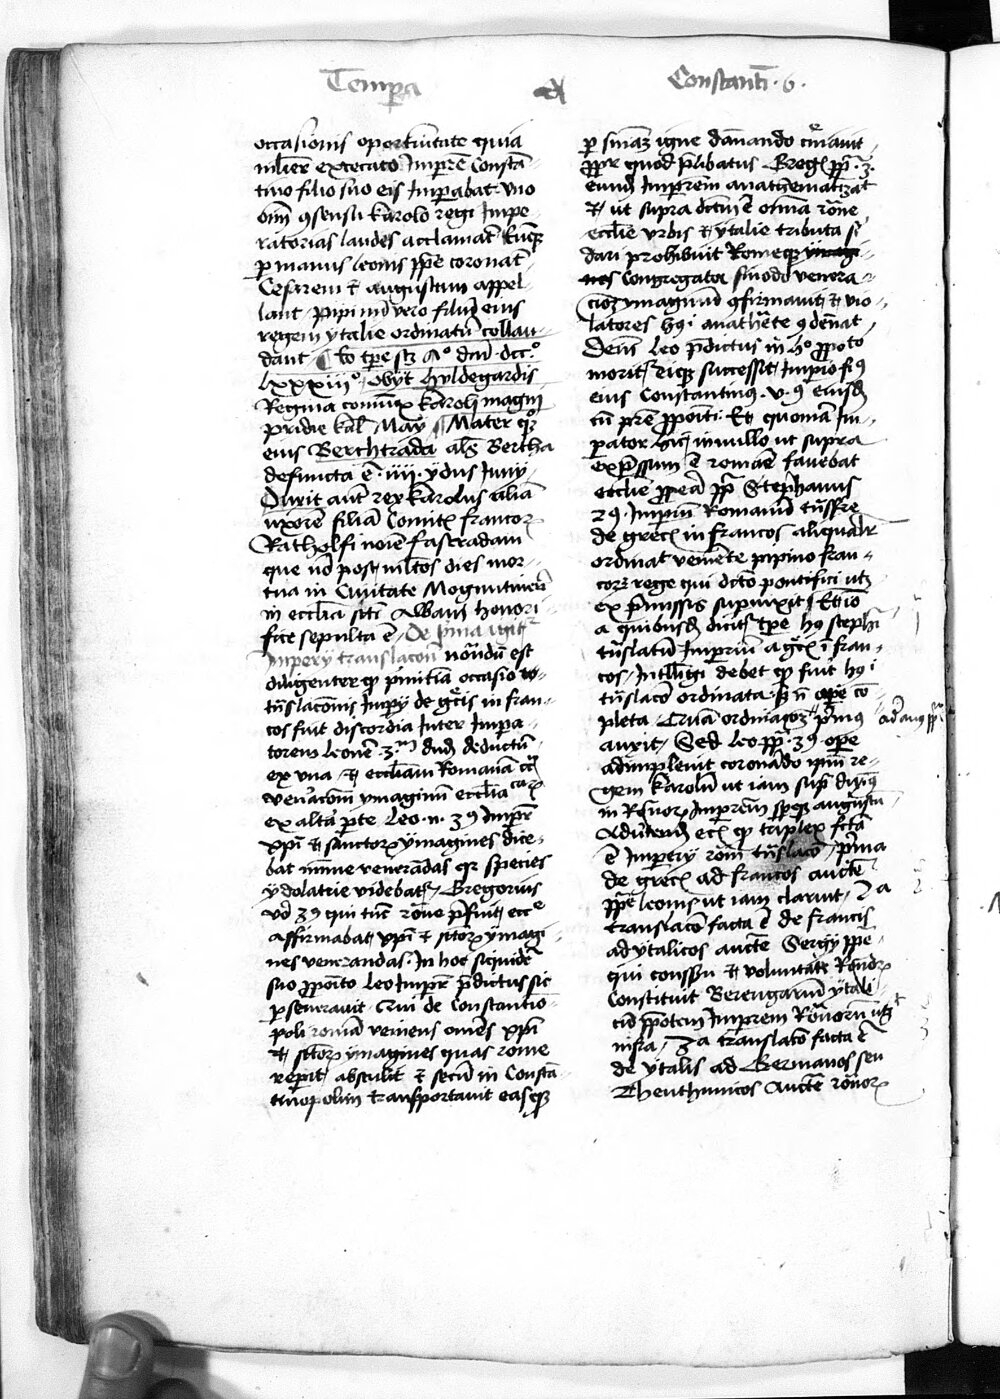 Tempora
Constanti · 6 ·
occasionis oportunitate quia
mulier excecato Impre Constan-
tino filio suo eis Imperabat vno
omni 9sensu karolo regi Impe-
ratorias laudes acclamant Eumque
per manus leonis pape coronant
Cesarem et augustum appel-
lant / pipinum vero filium eius
regem ytalie ordinatum collau-
dant ¶ Eo tpe scz A° dni · dcc.°
lxxxiii° · obyt hyldegardis
Regina coniunx karoli magni
pridie kal May ¶ Mater quoque
eius Berchtrada als Bertha
defuncta ē · iiii · ydus Iuny ·
Duxit aut rex karolus aliam
uxorē filiā Comitis francorum
Ratholfi noīe fastradam
que nō post mltos dies mor-
tua in Ciuitate Moguntinensi
in ecclia scti Albani honori-
fice sepulta ē / De prima igitur
Impery translacōe notādū est
diligenter qz primitiua occasio
trslacōnis Impy de grecis in fran-
cos fuit discordia Inter Impa-
torem Leonē · 3m dum deductum
ex vna / et eccliam Romanam circa
veneracōem ymaginum ecclia
ex altera parte Leo · n · 39 Imperator
xpi et sanctorum ymagines dice-
bat minime venerandas quia species
ydolatrie videbatur / Gregorius
vero 39 qui tunc romane prefuit ecclie
Affirmabat xpi et sanctorum ymagi-
nes venerandas · In hoc siquidem
suo proposito Leo Imperator predictus sic
perseverauit Qui de Constantino-
poli romam veniens omnes xpi
et sanctorum ymagines quas rome
reperit / abstulit et secum in Constan-
tinopolim transportauit easque
per suam igne damnando cremauit
propter quod prelibatus Gregorius papa · 3 ·
eundem Imperatorem anathematizat
et ut supra dictum ē omnia romane
ecclie vrbis et ytalie tributa sibi
dari prohibuit Romeque ymagi-
nes Congregata sinodo venera-
cionem ymaginum 9firmauit et vio-
latores huius anathemate 9dēnat
Deinde Leo predictus in hoc proposito
moritur Eique successit Imperio filius
eius Constantinus · v · 9 eiusdem
cum patre propositi · Et quoniam Im-
perator huiusmodi in nullo ut supra
expressum ē romane fauebat
ecclie propterea papa Stephanus
29 · Imperium Romanum trāsferre
de grecis in francos aliqualiter
ordinat veniente pipino fran-
corum rege qui dicto pontifici ut
ex premissis supuixit / Et ideo
a quibusdam dicitur tpe huius stephani
trāslatum Imperium a grecis in fran-
cos / Intelligi debet quod fuit huiusmodi
trāslacio ordinata sed non opere com-
pleta Quam ordinacionem primus
auxit / Sed Leo papa · 39 · opere
adimpleuit coronando ipsum re-
gem karolum ut iam supra diximus
in Romanorum Imperatorem semperque augustum
Aduertendum eciam quod triplex facta
ē Impery rom trāslacio / prima
de grecis ad francos auctoritate
pape leonis ut iam claruit / 2a
translacio facta ē de francis
ad ytalicos auctoritate Sergy pape
qui consensu et voluntate Romanorum
Constituit Berengarium ytali-
cum prepotentem Imperatorem Romanorum ut
infra / 3a translacio facta ē
de ytalis ad Germanos seu
Theuthunicos Auctoritate romanorum